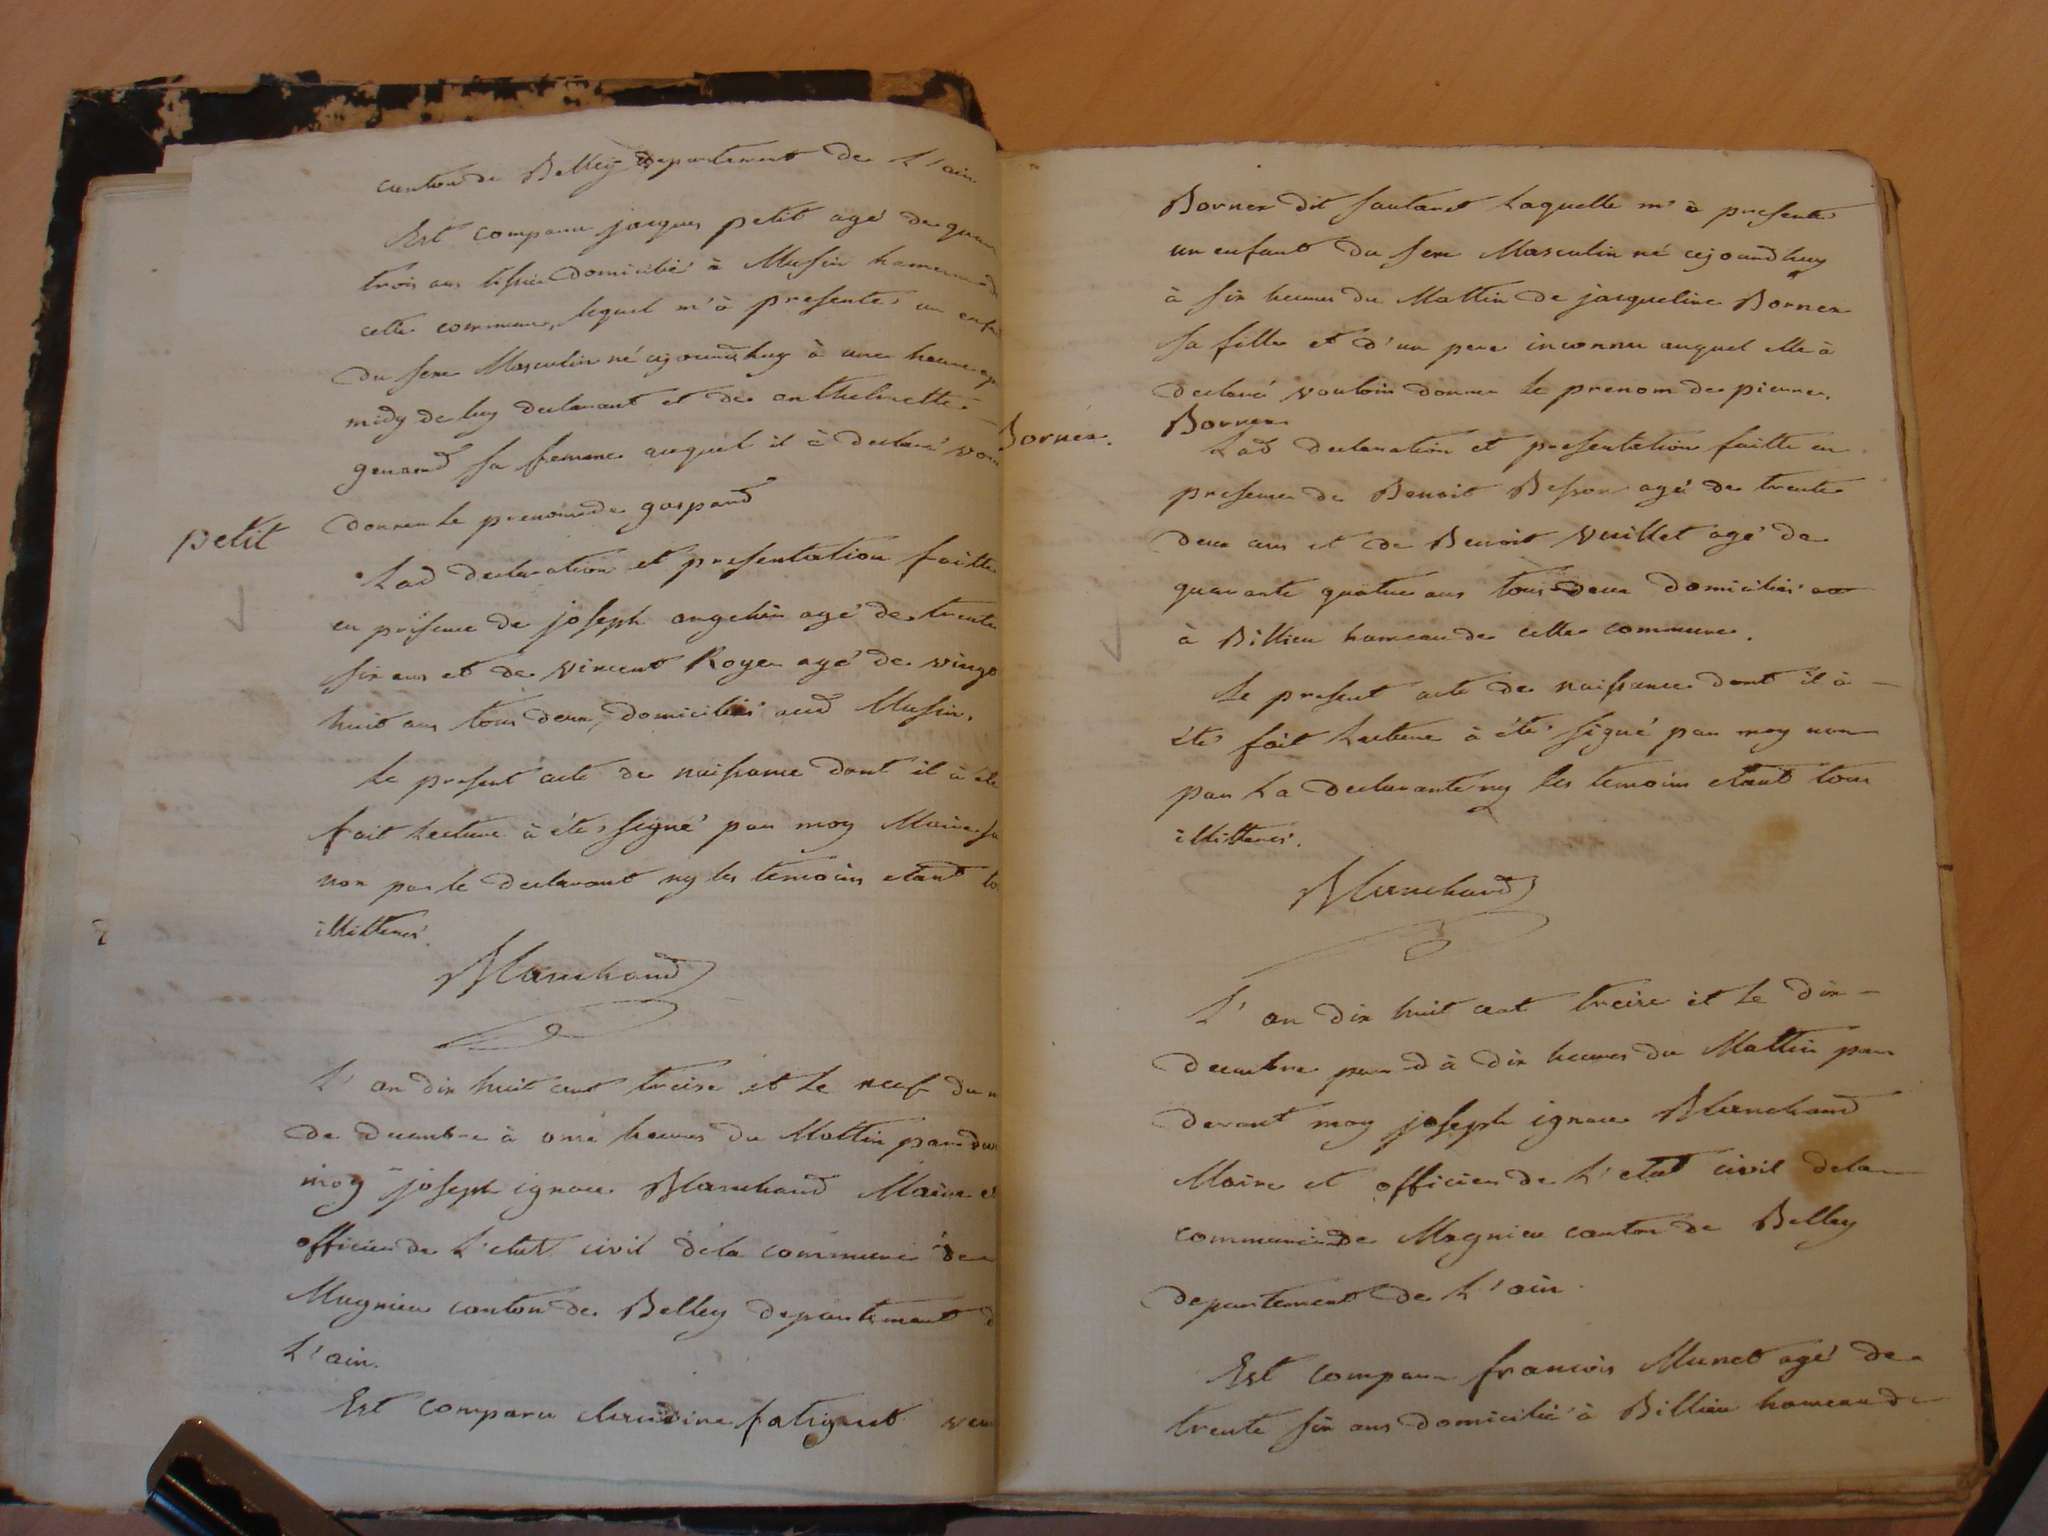 canton de Belley departement de L'ain
Est comparu jacques petit agé de quar
trois ans tissier domicilié à Musin hameau d
cette commune, lequel m'à presenté un enfa
du sexe Masculin né cejourdhuy à une heure ap
midy de luy declarant et de anthelmette
genand sa femme auquel il à declaré vou
donner le prenom de gaspard
petit
Lad declaration et presentation faitte
en présence de joseph angelin agé de trente
six ans et de vincent Royer agé de vingt
huit ans tous deux domiciliés aud Musin.
Le present acte de naissance dont il à été
fait Lecture à été signé par moy Maire su
non par le declarant ny les temoins etant to
illitterés.
Marchand
L'an dix huit cent treize et le neuf du m
de decembre à onze heures du Mattin par dev
moy joseph ignace Marchand Maire et
officier de L'etat civil de la commune de
Magnieu canton de Belley departement d
L'ain.
Est comparu claudine fatiguet veu
Borner dit sautaret Laquelle m'à presenté
un enfant du sexe Masculin né cejourdhuy
à six heures du Mattin de jacqueline Borner
sa fille et d'un pere inconnu auquel elle à
declaré vouloir donner le prenom de pierre.
Borner.
Borner
Lad declaration et presentation faitte en
presence de Benoit Besson agé de trente
deux ans et de Benoit Vuillet agé de
quarante quatre ans tous deux domiciliés
à Billieu hameau de cette commune.
Le present acte de naissance dont il à
été fait Lecture à été signé par moy non
par La declarante ny les temoins etant tous
illitterés.
Marchand
L'an dix huit cent treize et le dix
decembre à dix heures du Mattin par
devant moy joseph ignace Marchand
Maire et officier de L'etat civil de la
commune de Magnieu canton de Belley
departement de L'ain.
Est comparu francois Munet agé de
trente six ans domicilié à Billieu hameau de